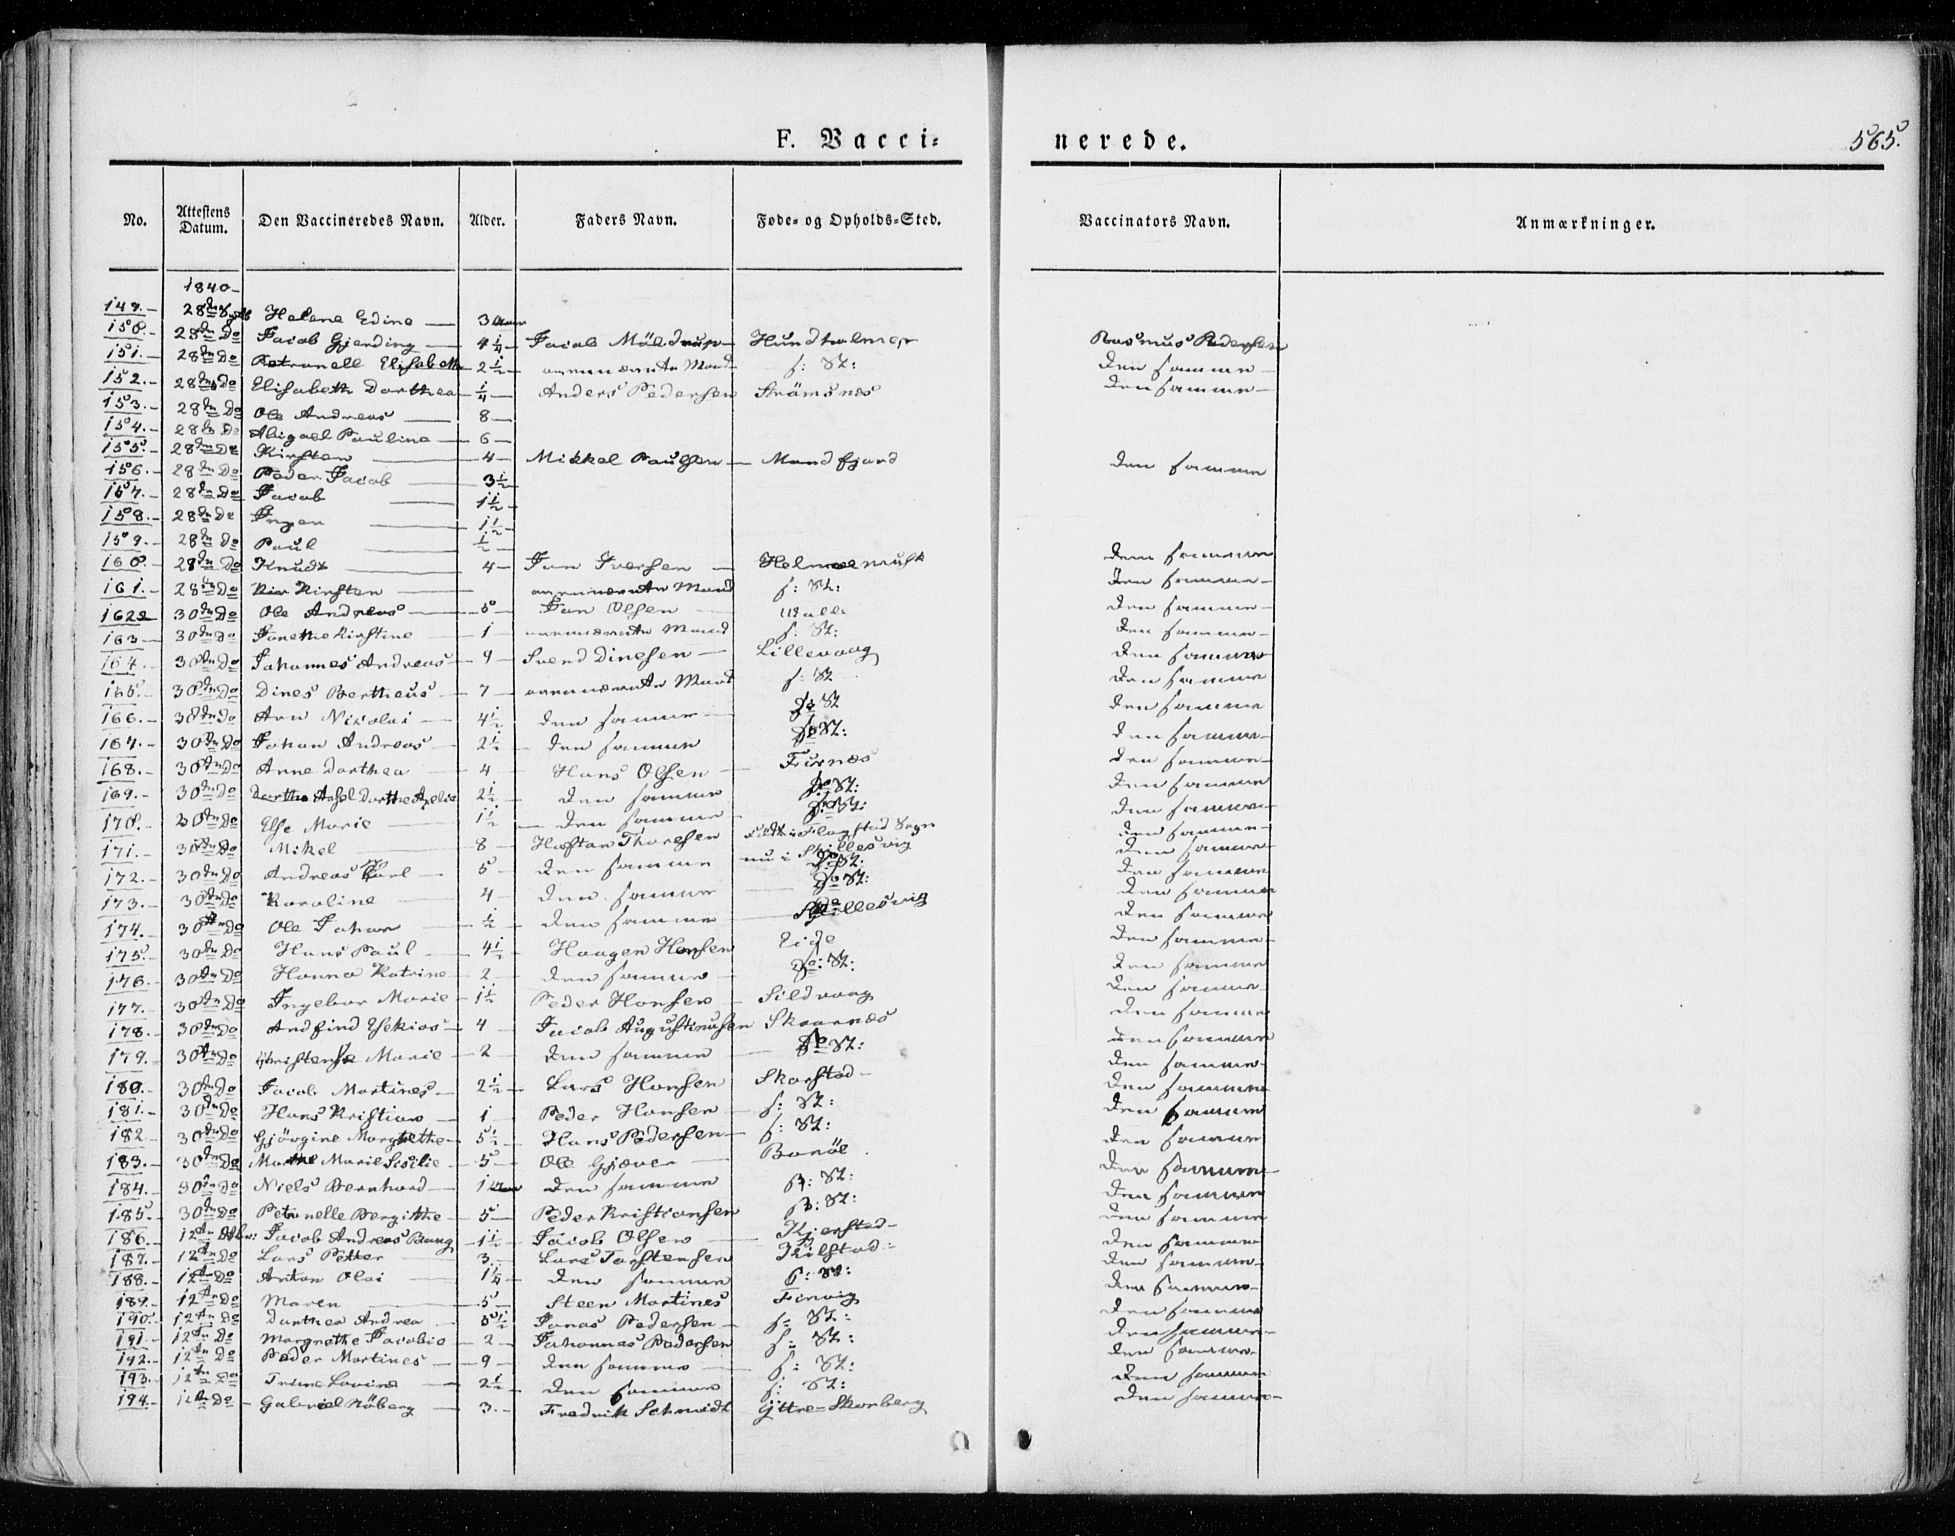 F. Vacci-
nerede.
565.
No.
Attestens Datum.
Den Vaccineredes Navn.
Alder.
Faders Navn.
Føde- og Opholds-Sted.
Vaccinators Navn.
Anmærkninger.
1840-
149.- 28de Helene Edine 3
150.- 28de Do Jacob Gjerding 4 1/4 Jacob Hundholmen Rasmus Pedersen
151.- 28de Do Petronell Elisabeth 2 1/2 ovennævnte Mand s: St: den samme
152.- 28de Do Elisabeth Dorthea 1/4 Anders Pedersen Strømsnæs den samme
153.- 28de Do Ole Andreas 8
154.- 28de Do Abigael Paulina 6
155.- 28de Do Kirsten 4 Mikkel Paulsen den samme
156.- 28de Do Peder Jacob 3 1/2
157.- 28de Do Jacob 1 1/2
158.- 28de Do 1 1/2
159.- 28de Do Paul 1/2 den samme
160.- 28de Do Knudt 4 Iversen den samme
161.- 28de Do Kirsten ovennævnte Mand s: St: den samme
162 30de Do Ole Andreas 5 Olsen den samme
163 30de Do Kirstine 1 ovennævnte Mand s: St: den samme
164.- 30de Do Johannes Andreas 9 Svend Dinesen Lillevaag den samme
165.- 30de Do Dines Bertheus 7 ovennævnte Mand s: St den samme
166.- 30de Do Arn Nikolai 4 1/2 den samme Do St den samme
167.- 30de Do Johan Andreas 2 1/2 den samme Do St: den samme
168.- 30de Do Anne Dorthea 4 Hans Olsen Furnæs den samme
169.- 30de Do 2 1/2 den samme Do St: den samme
170.- 30de Do Else Marie 1 1/2 den samme Do St: den samme
171.- 30de Do Mikel 8 Thoresen Født i Flagstad Sogn nu i Skillesvig den samme
172.- 30de Do Andreas Karl 5 den samme Do St: den samme
173.- 30de Do Karoline 4 den samme Do St: den samme
174.- 30de Do Ole Johan 1/2 den samme Skillesvig den samme
175.- 30de Do Hans Paul 4 1/2 Haagen Hansen Eide den samme
176.- 30de Do Hanna Katrine 2 den samme Do: St: den samme
177.- 30de Do Ingebor Marie 1 1/2 Peder Hansen Sildvaag den samme
178.- 30de Do Andfind Esekias 4 Jacob Augustinusen Skarnæs den samme
179.- 30de Do Marie 2 den samme Do St: den samme
180.- 30de Do Jacob Martines 2 1/2 Lars Hansen Skarstad den samme
181.- 30de Do Hans Kristian 1 Peder Hansen s: St: den samme
182 30de Do Gjørgine Margrethe 5 1/2 Hans Pedersen s: St: den samme
183.- 30de Do Marthe Marie Sisilie 5 Ole Gjæver Barøe den samme
184.- 30de Do Niels Bernhard 1 den samme s: St: den samme
185.- 30de Do Petronelle Bergithe 5 Peder Kristiansen s: St: den samme
186.- 12te Jacob Andreas Bang 1 1/2 Jacob Olsen Kjerstad den samme
187.- 12te Do Lars Petter 3. Lars Torstensen Kilstad den samme
188.- 12te Do Anton Olai 1 1/4 den samme s: St: den samme
189.- 12te Do Maren 5 Steen Martines den samme
190.- 12te Do Dorthea Andrea 5 1/2 Jonas Pedersen s: St: den samme
191.- 12te Do Margrethe Jacobia 2 Johannes Pedersen s: St: den samme
192.- 12te Do Peder Martines 9 den samme s: St: den samme
193.- 12te Do Trine Lovise 2 1/2 den samme s: St: den samme
194.- 12te Do Gabriel Røberg 3.- Fredrik Schmidt Yttre-Skarberg den samme